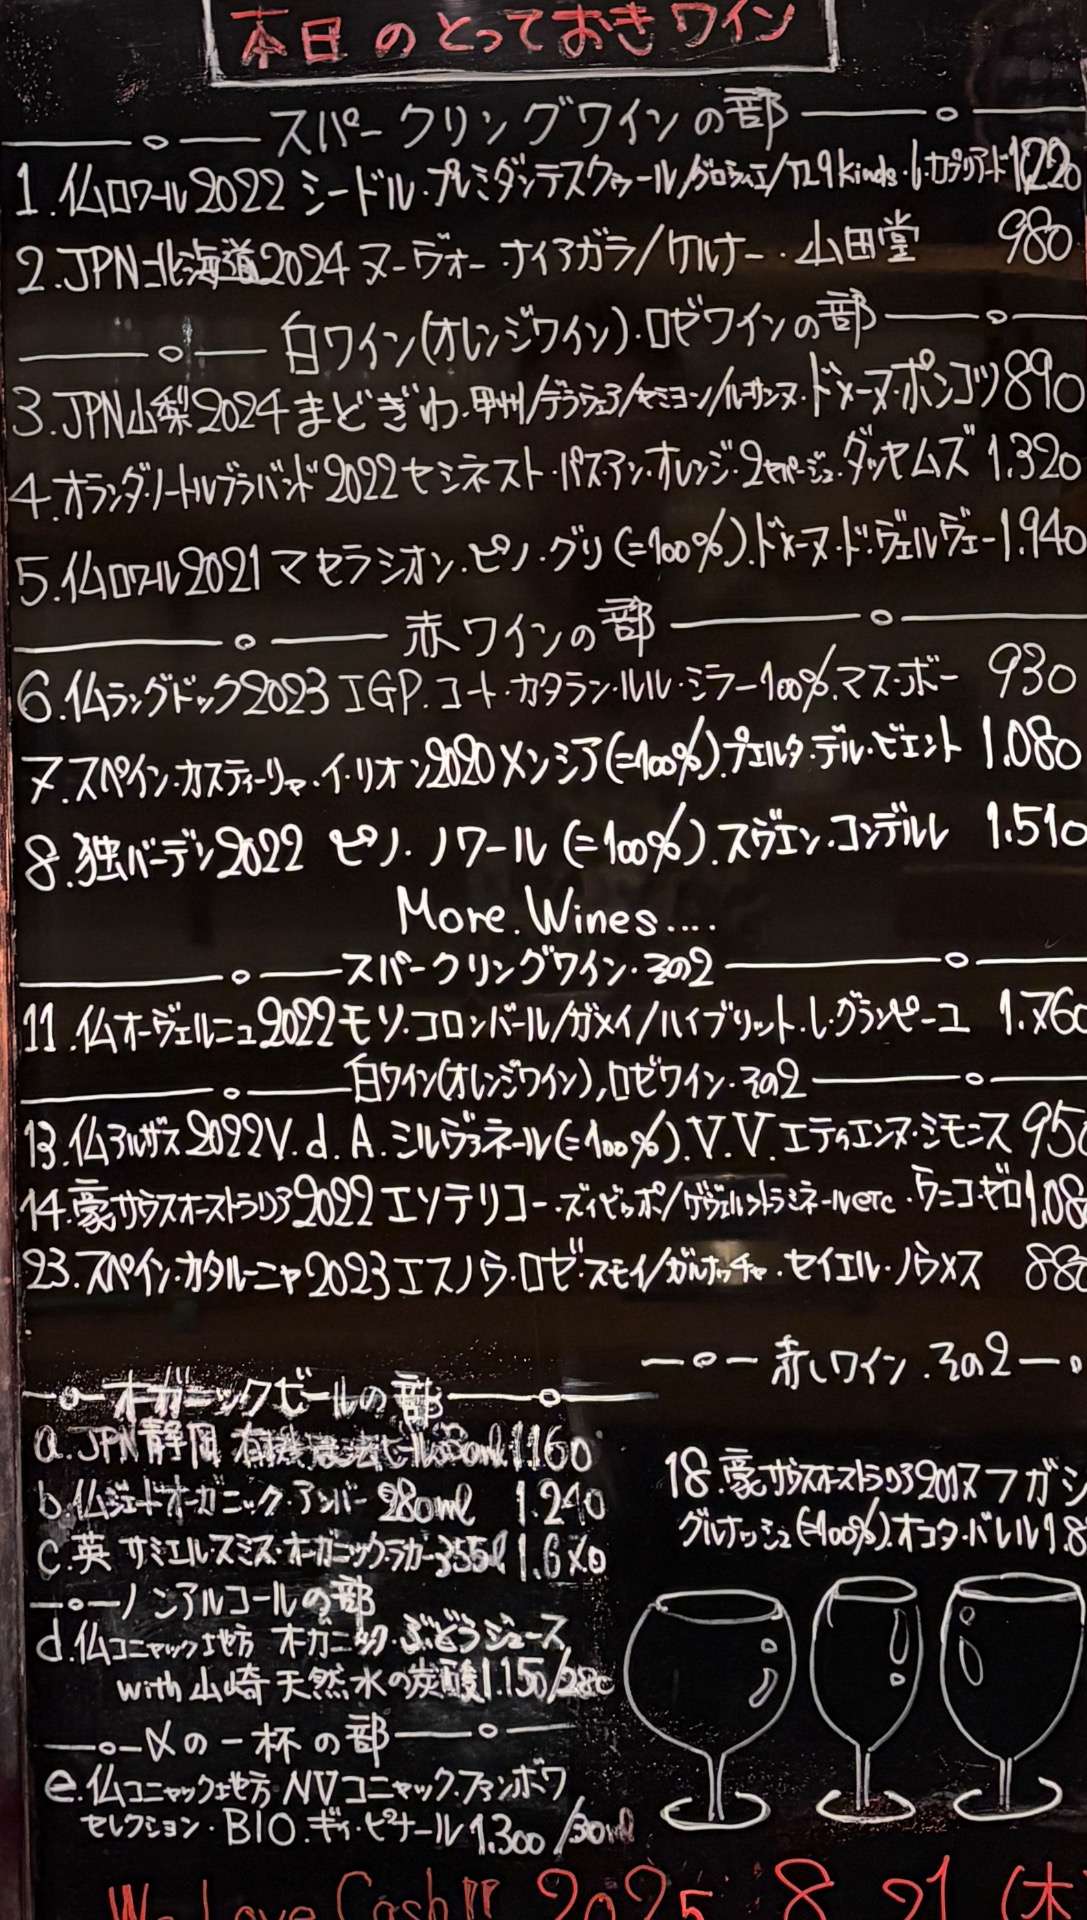 本日のとっておきワイン
スパークリングワインの部
1.仏ロワール2022 シードル・プルミダンテスクゥール/グロライエ/ 29kinds・L・カプリアード 1.220
2.JPN北海道2024 ヌーヴォー・ナイアガラ/ケルナー・山田堂 980
白ワイン(オレンジワイン)・ロゼワインの部
3.JPN山梨2024まどぎわ・甲州/デラウェア/セミヨン/ルーサンヌ・ドメーヌ・ポンコツ 890
4.オランダ・ノートルブラバンド2022セシネスト・パス・アン・オレンジ・2セパージュ・ダッセムズ 1.320
5.仏ロワール2021マセラシオン・ピノ・グリ(=100%).ドメーヌ・ド・ヴェルヴェー 1.940
赤ワインの部
6.仏ラングドック2023 IGP.コート・カタラン・ルル・ミラー100%.マス・ボー 930
7.スペイン・カスティーリャ・イ・リオン2020メンシア(=100%).プエルタ・デル・ビエント 1.080
8.独バーデン2022 ピノ・ノワール(=100%).スヴェン・コンデルレ 1.510
More.Wines....
スパークリングワイン・その2
11.仏オーヴェルニュ2022モソ・コロンバール/ガメイ/ハイブリット・L・グランペーユ 1.760
白ワイン(オレンジワイン),ロゼワイン・その2
13.仏アルザス2022V.d.A.シルヴァネール(=100%).V.V.エティエンヌ・シモニス 950
14.豪サウスオーストラリア2022エソテリコー・ズィビッボ/ゲヴェルツトラミネールetc・ウニコ・ゼロ 1.08
23.スペイン・カタルーニャ2023エスノラ・ロゼ・スモイ/ガルナッチャ・セイエル・ノウメス 880
赤しワイン.その2
オーガニックビールの部
a.JPN静岡 有機農法ビール 330ml 1.160
b.仏ジェードオーガニック・アンバー 280ml 1.240
c.英 サミエルスミス・オーガニックラガー355l 1.670
ノンアルコールの部
d.仏コニャック地方 オーガニック・ぶどうジュース
with山崎天然水の炭酸1.150/280
〆の一杯の部
e.仏コニャック地方 NVコニャック・ファンボワ
セレクション・BIO.ギィ・ピナール1.300/30ml
18.豪サウスオーストラリア2017ヌフガシ
グルナッシュ(=100%).オコタ・バレル 1.8
We Love Cash!!! 2025.8.21(木